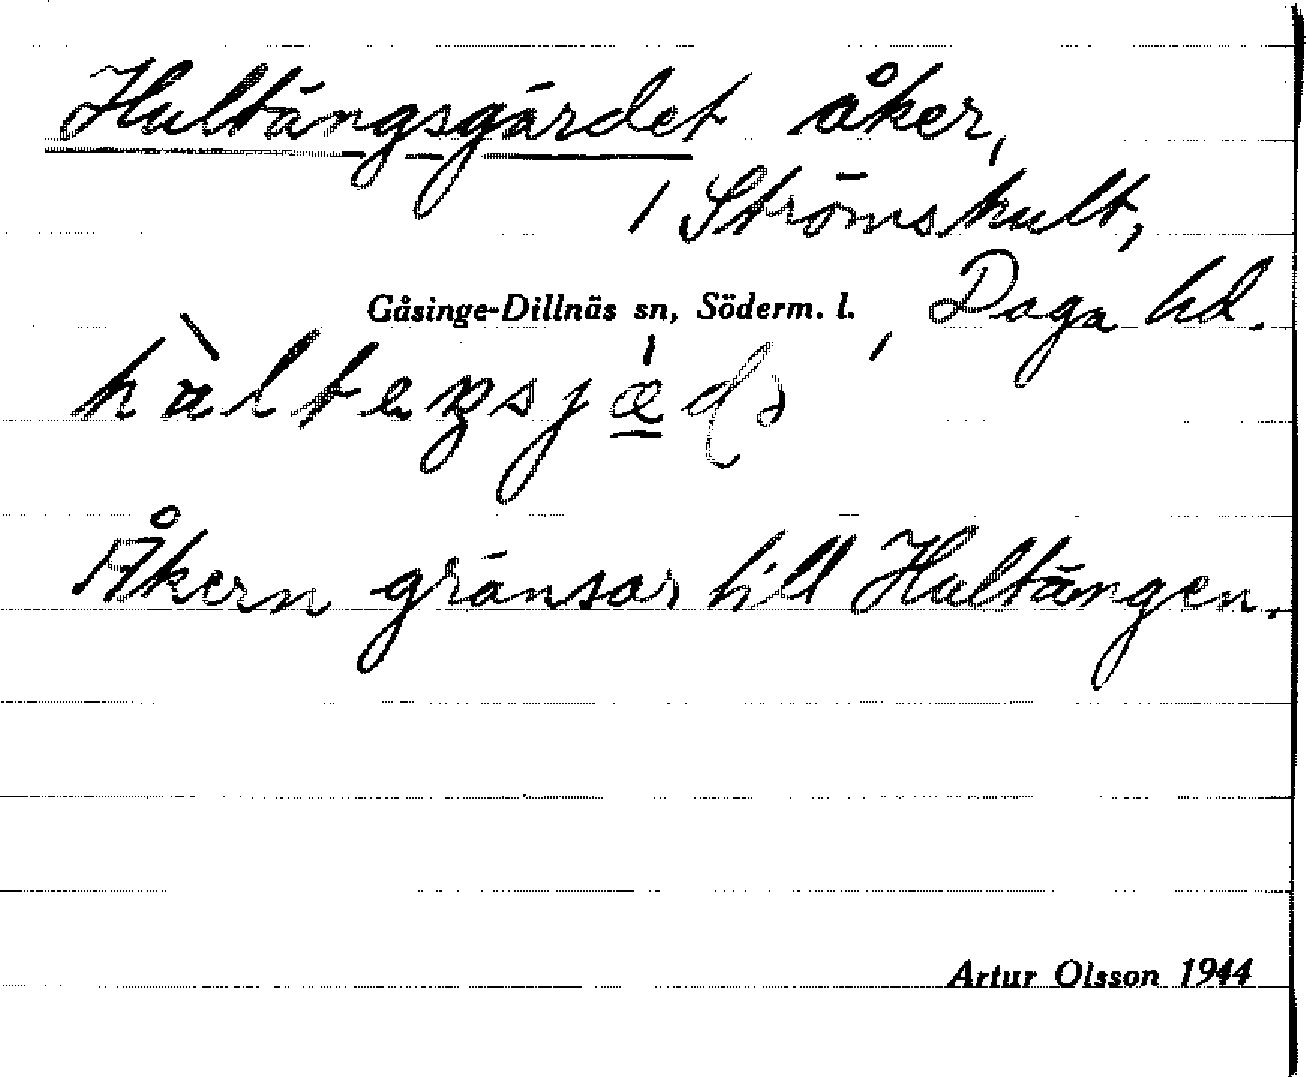 Hultängsgärdet åker,
/ Strömshult,
Gåsinge-Dillnäs sn, Söderm. l. , Daga hd.
Åkern gränsar till Hultängen.
Artur Olsson 1944